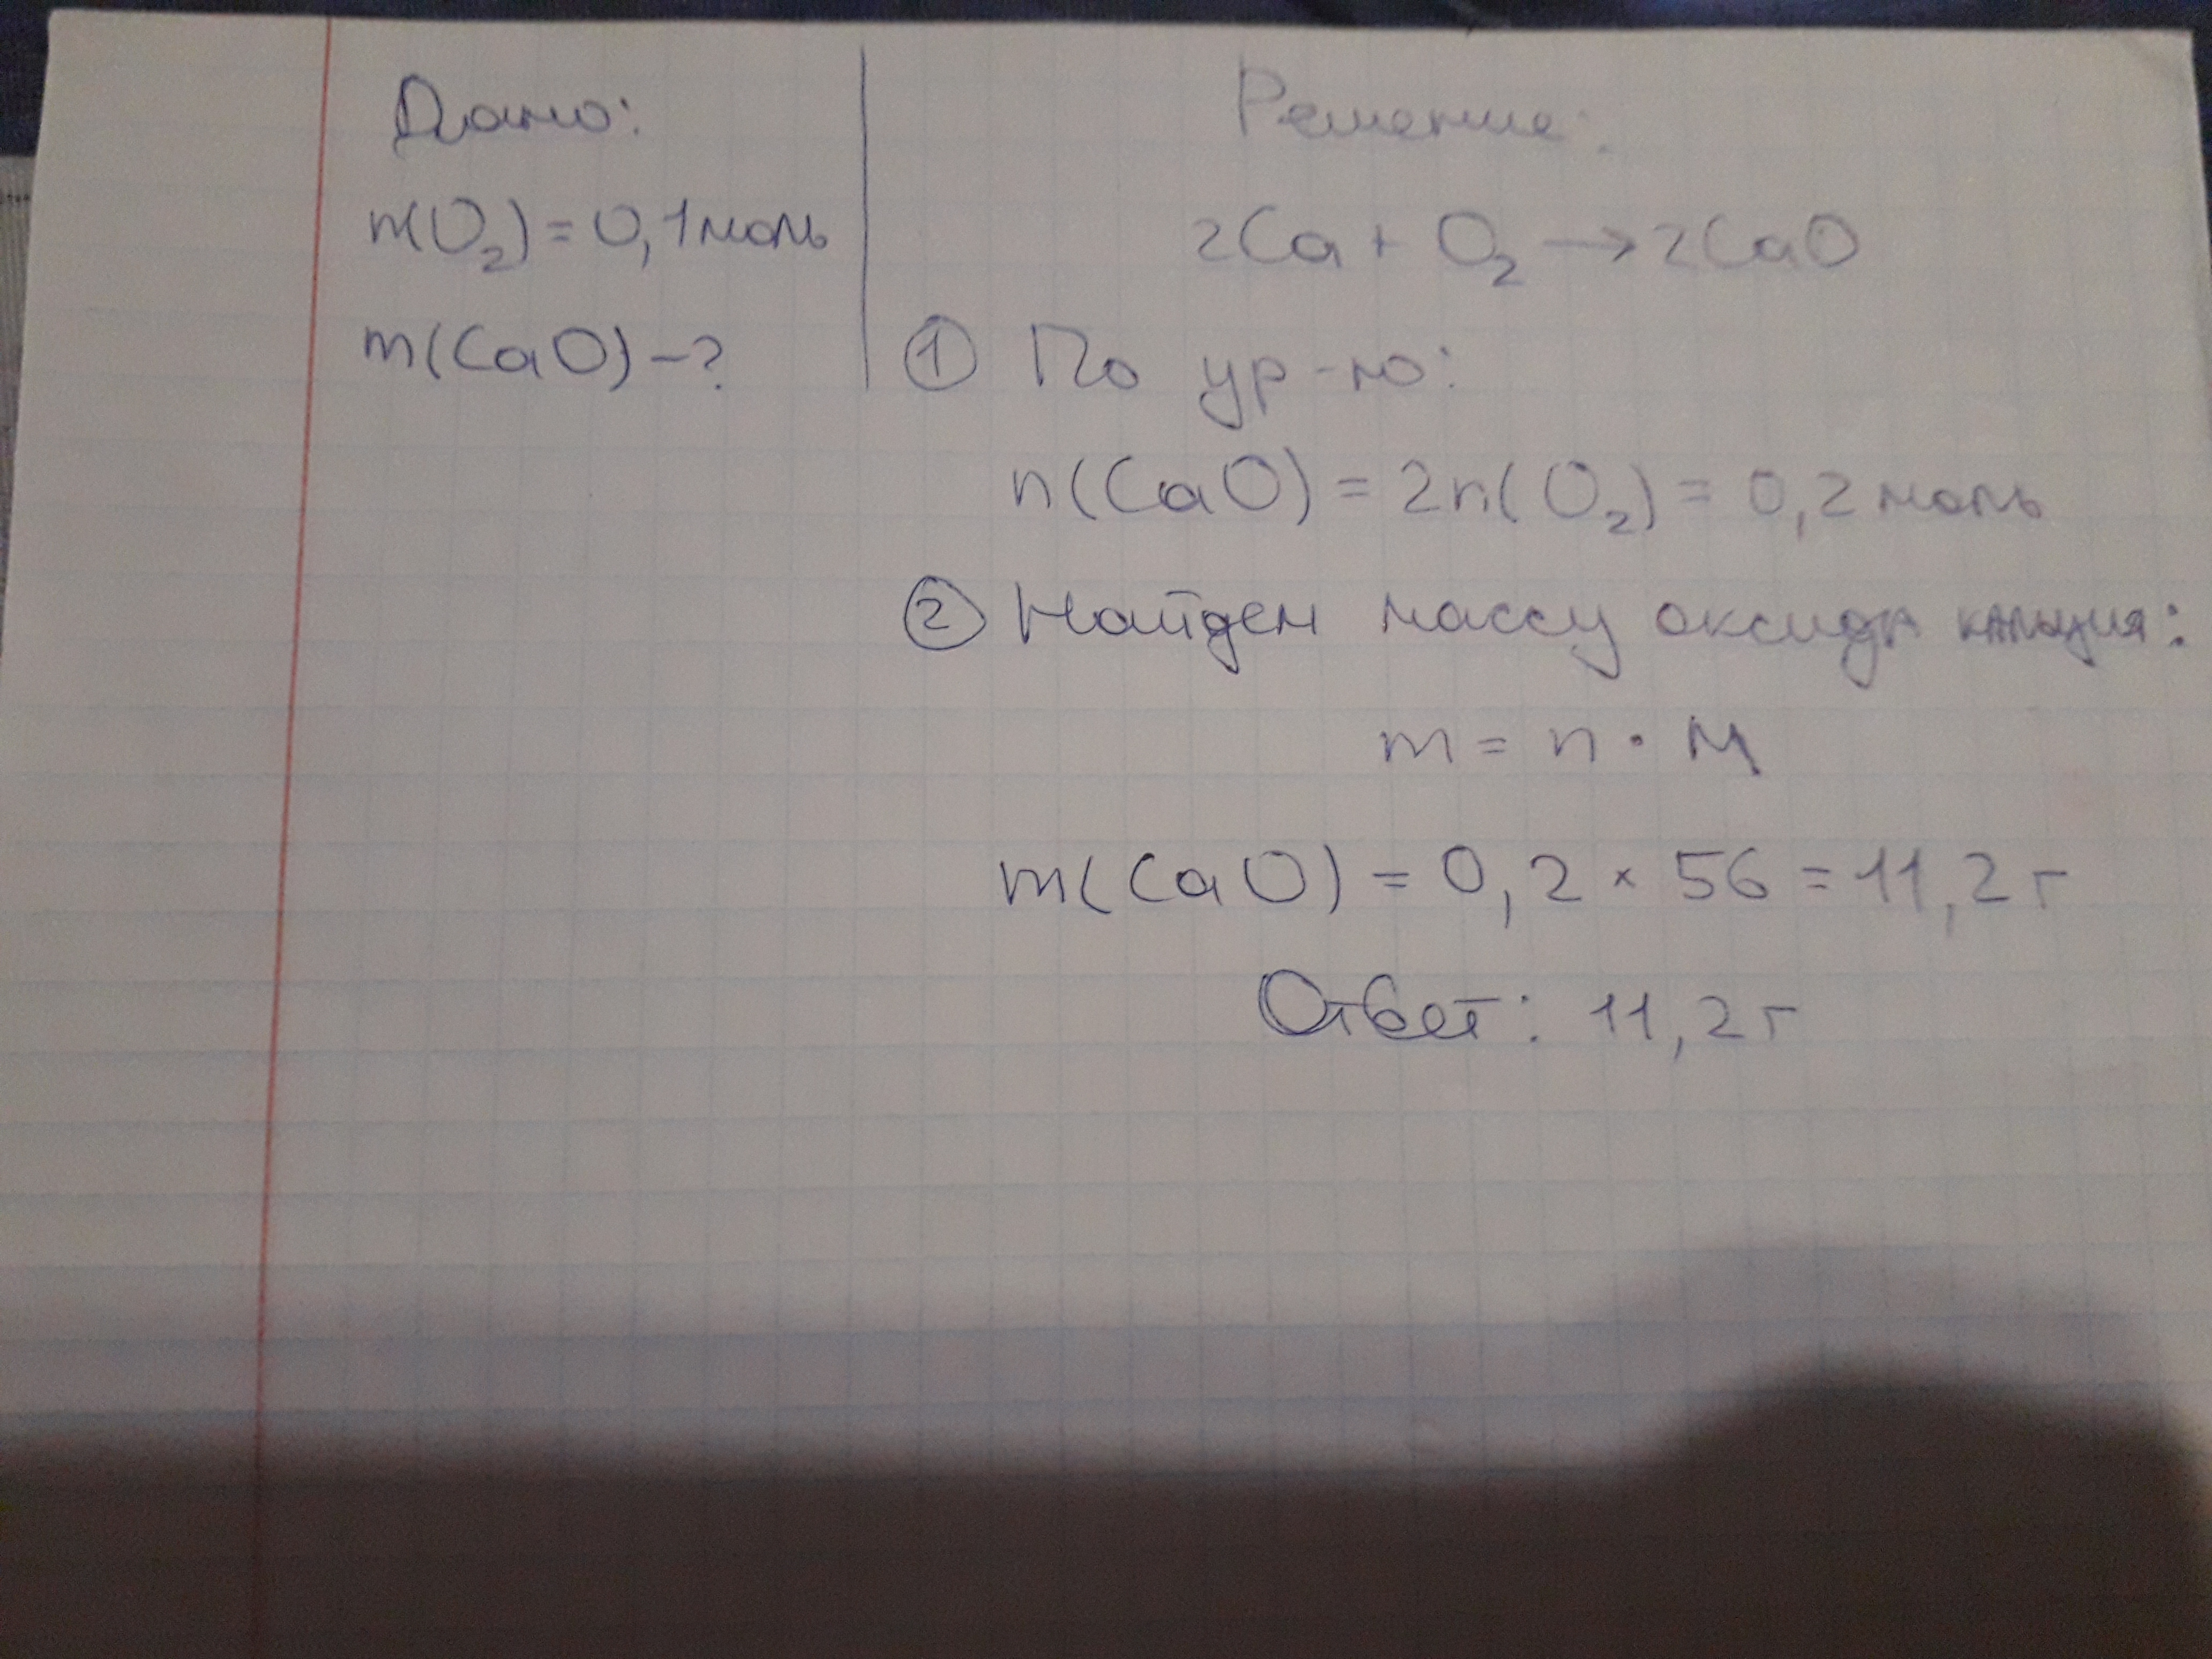 Дано:
n(O₂) = 0,1 моль
m(CaO) – ?
Решение:
2Ca + O₂ → 2CaO
① По ур-ю:
n(CaO) = 2n(O₂) = 0,2 моль
② Найдем массу оксида кальция:
m = n · M
m(CaO) = 0,2 × 56 = 11,2 г
Ответ: 11,2 г